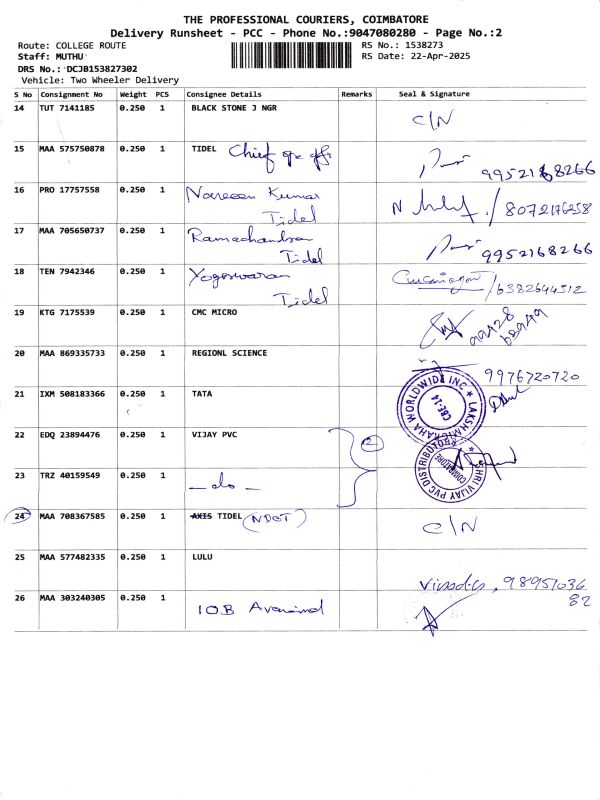 THE PROFESSIONAL COURIERS, COIMBATORE
Delivery Runsheet - PCC - Phone No.:9047080280 - Page No.:2
Route: COLLEGE ROUTE RS No.: 1538273
Staff: MUTHU RS Date: 22-Apr-2025
DRS No.: DCJB153827302
Vehicle: Two Wheeler Delivery
S No Consignment No Weight PCS Consignee Details Remarks Seal & Signature
14 TUT 7141185 0.250 1 BLACK STONE J NGR C/N
15 MAA 575750878 0.250 1 TIDEL Chief 9952168266
16 PRO 17757558 0.250 1 Nareen Kumar Tidel 8072176258
17 MAA 705650737 0.250 1 Ramachandran Tidel 9952168266
18 TEN 7942346 0.250 1 Yogeswaran Tidel /6382644312
19 KTG 7175539 0.250 1 CMC MICRO
20 MAA 869335733 0.250 1 REGIONL SCIENCE 9976720720
21 IXM 508183366 0.250 1 TATA LAKSHMIGRAHA WORLDWIDE INC CBE-14
22 EDQ 23894476 0.250 1 VIJAY PVC 2
23 TRZ 40159549 0.250 1 -do- SHRI VIJAY PVC DISTRIBUTORS COIMBATORE
24 MAA 708367585 0.250 1 AXIS TIDEL (NDOT) C/N
25 MAA 577482335 0.250 1 LULU
26 MAA 303240305 0.250 1 IOB Avaraimd 9895103682